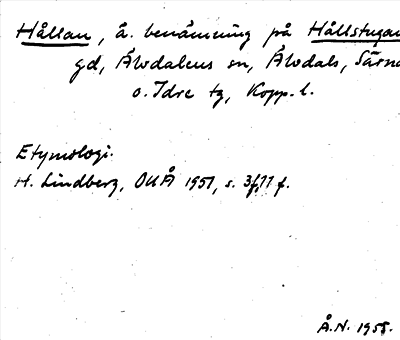 Hållan, ä. benämning på Hållstugan
gd, Älvdalens sn, Älvdals, Särna
o. Idre tg, Kopp. l.
Etymologi.
H. Lindberg, OUÅ 1951, s. 3f, 11 f.
Å.N. 1958.